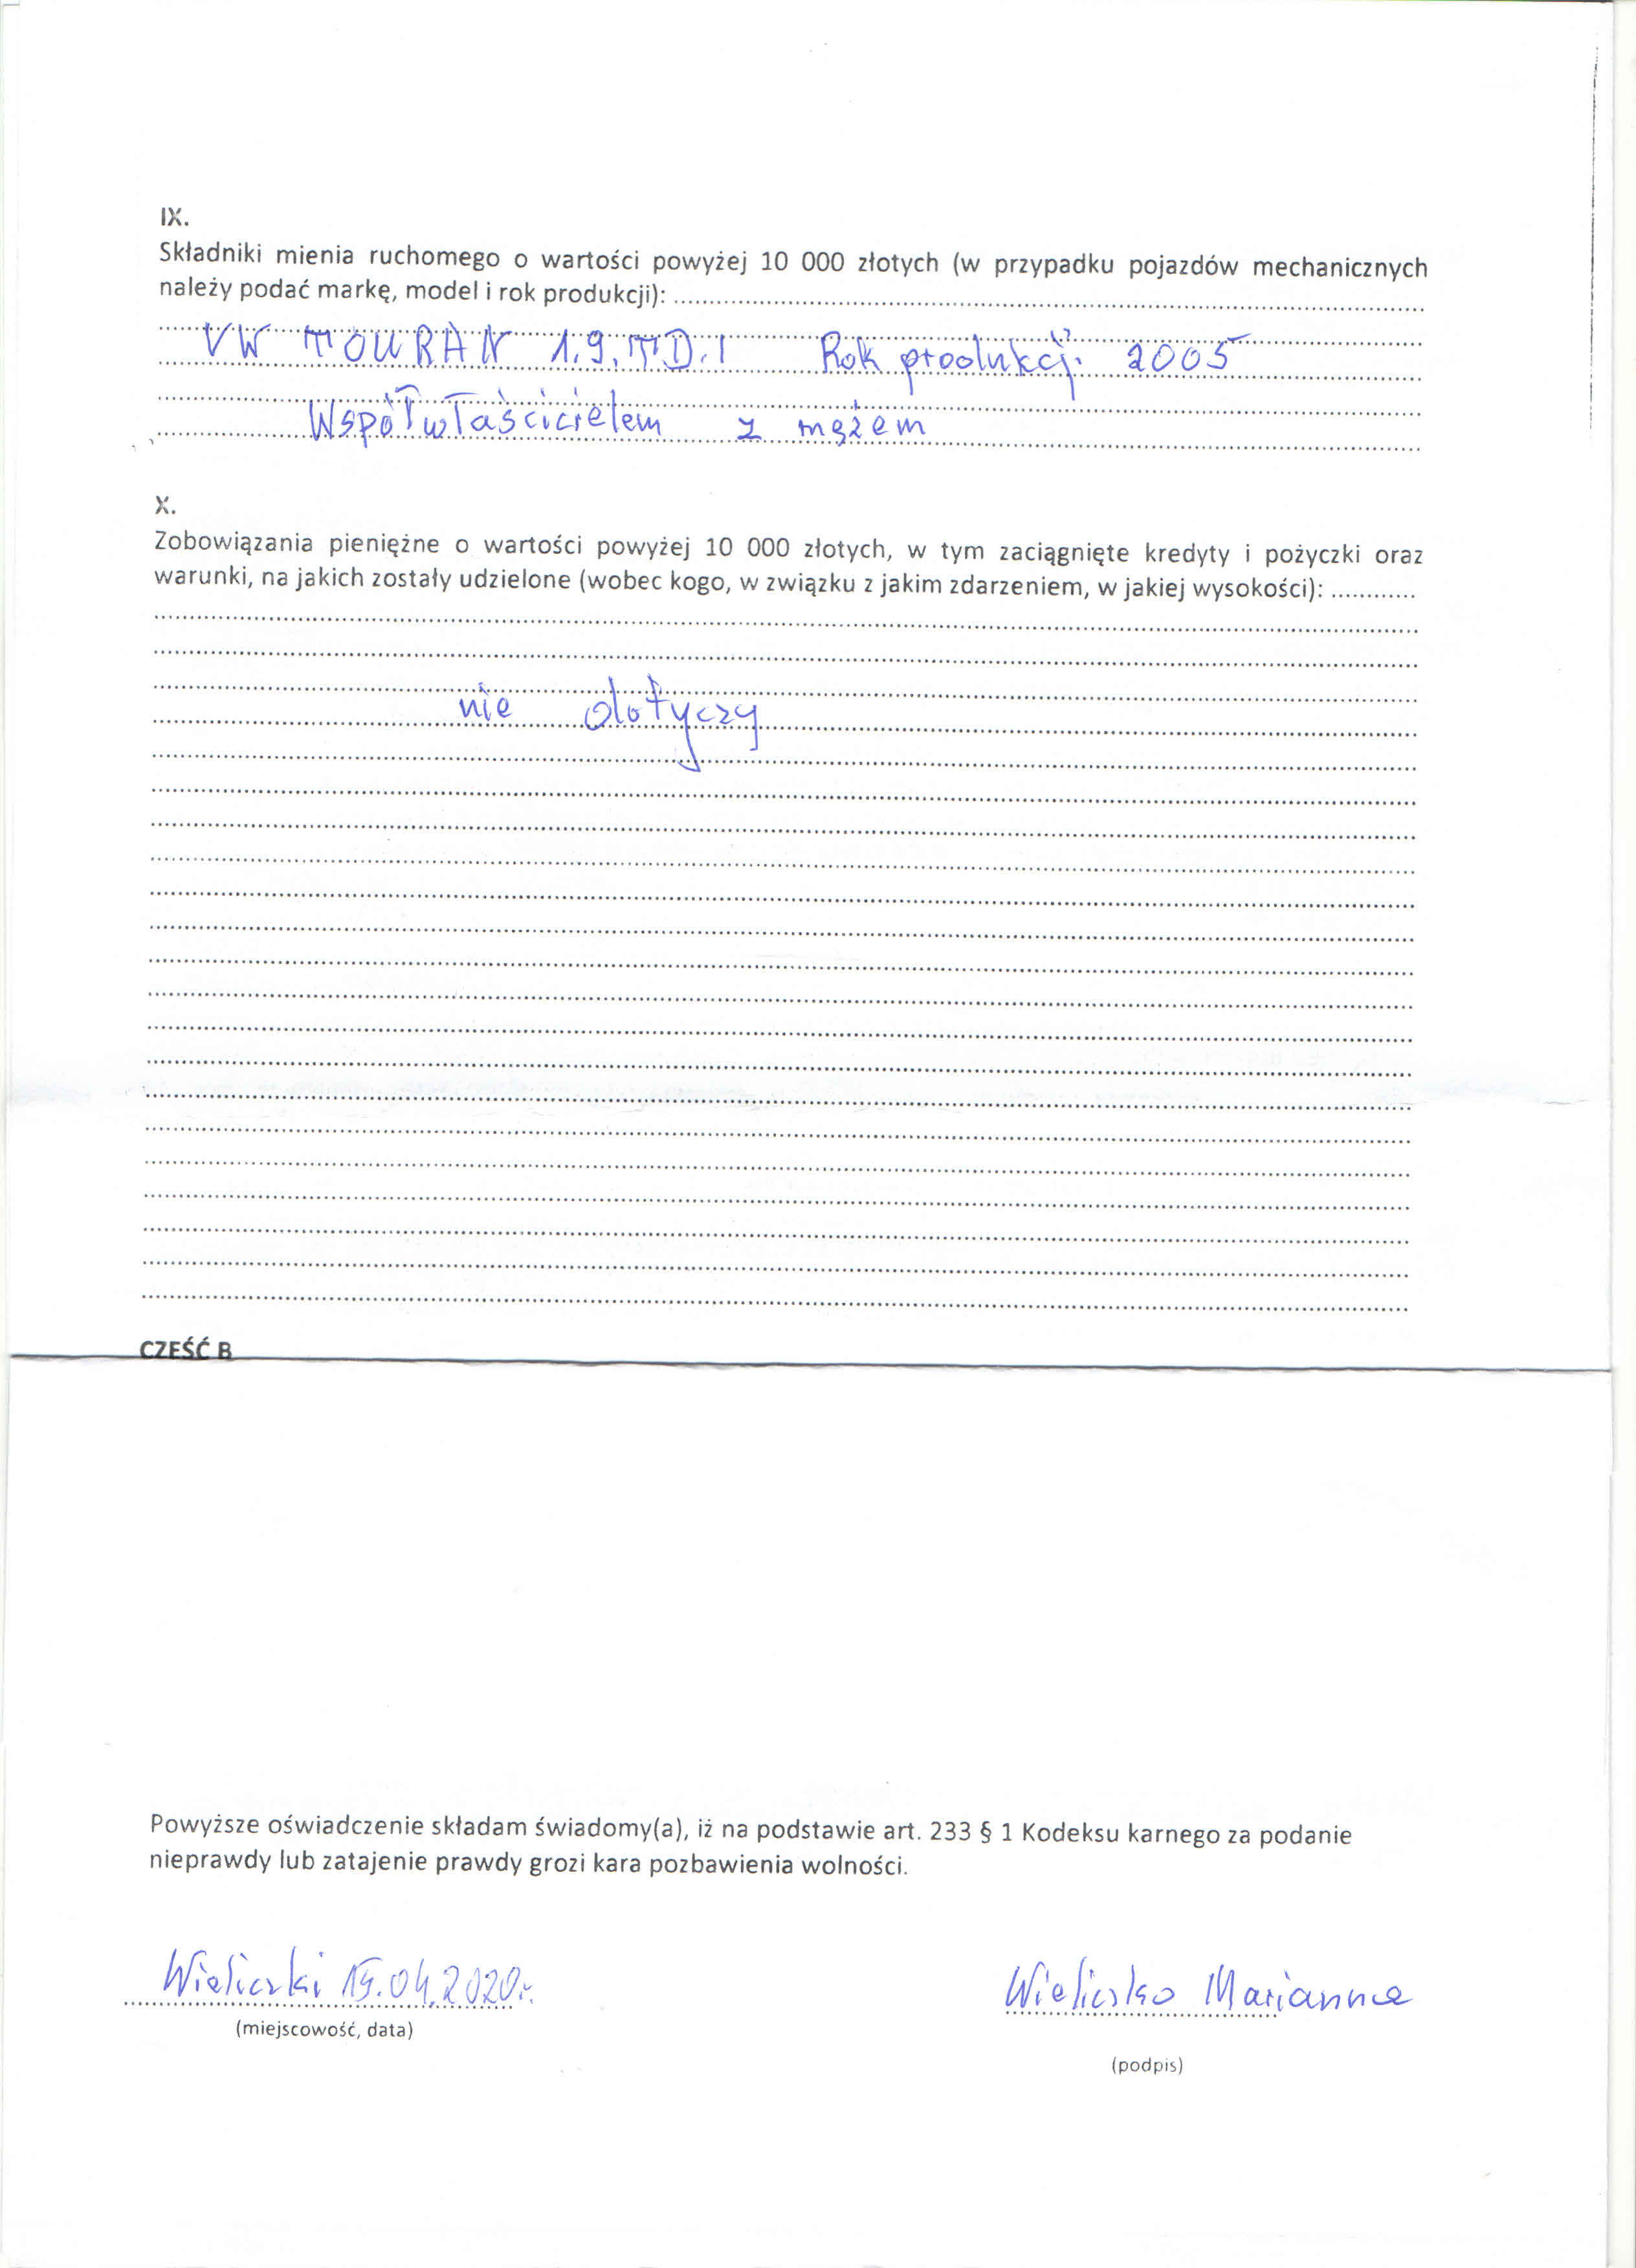 IX.
Składniki mienia ruchomego o wartości powyżej 10 000 złotych (w przypadku pojazdów mechanicznych
należy podać markę, model i rok produkcji):
VW TOURAN 1.9.TD.I Rok produkcji 2005
Współwłaścicielem z mężem
X.
Zobowiązania pieniężne o wartości powyżej 10 000 złotych, w tym zaciągnięte kredyty i pożyczki oraz
warunki, na jakich zostały udzielone (wobec kogo, w związku z jakim zdarzeniem, w jakiej wysokości):
nie dotyczy
CZĘŚĆ B
Powyższe oświadczenie składam świadomy(a), iż na podstawie art. 233 § 1 Kodeksu karnego za podanie
nieprawdy lub zatajenie prawdy grozi kara pozbawienia wolności.
Wieliczki 15.04.2020r. Wieliczko Marianna
(miejscowość, data)
(podpis)